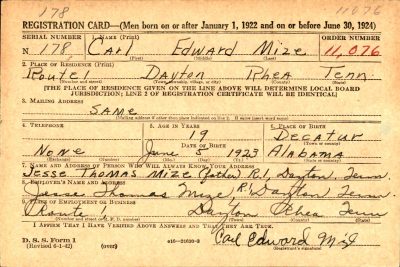 178
11076
REGISTRATION CARD—(Men born on or after January 1, 1922 and on or before June 30, 1924)
SERIAL NUMBER 1. NAME (Print) ORDER NUMBER
N 178 Carl Edward Mize 11,076
(First) (Middle) (Last)
2. PLACE OF RESIDENCE (Print)
Route 1 Dayton Rhea Tenn.
(Number and street) (Town, township, village, or city) (County) (State)
[THE PLACE OF RESIDENCE GIVEN ON THE LINE ABOVE WILL DETERMINE LOCAL BOARD
JURISDICTION; LINE 2 OF REGISTRATION CERTIFICATE WILL BE IDENTICAL]
3. MAILING ADDRESS
SAME
[Mailing address if other than place indicated on line 2. If same insert word same]
4. TELEPHONE 5. AGE IN YEARS 6. PLACE OF BIRTH
19 Decatur
DATE OF BIRTH (Town or county)
None June 5 1923 Alabama
(Exchange) (Number) (Mo.) (Day) (Yr.) (State or country)
7. NAME AND ADDRESS OF PERSON WHO WILL ALWAYS KNOW YOUR ADDRESS
Jesse Thomas Mize (father) R.1, Dayton, Tenn.
8. EMPLOYER'S NAME AND ADDRESS
Jesse Thomas Mize, R1, Dayton, Tenn.
9. PLACE OF EMPLOYMENT OR BUSINESS
Route 1 Dayton Rhea Tenn
(Number and street or R. F. D. number) (Town) (County) (State)
I AFFIRM THAT I HAVE VERIFIED ABOVE ANSWERS AND THAT THEY ARE TRUE.
D. S. S. Form 1
(Revised 6-1-42) (over) Carl Edward Mize